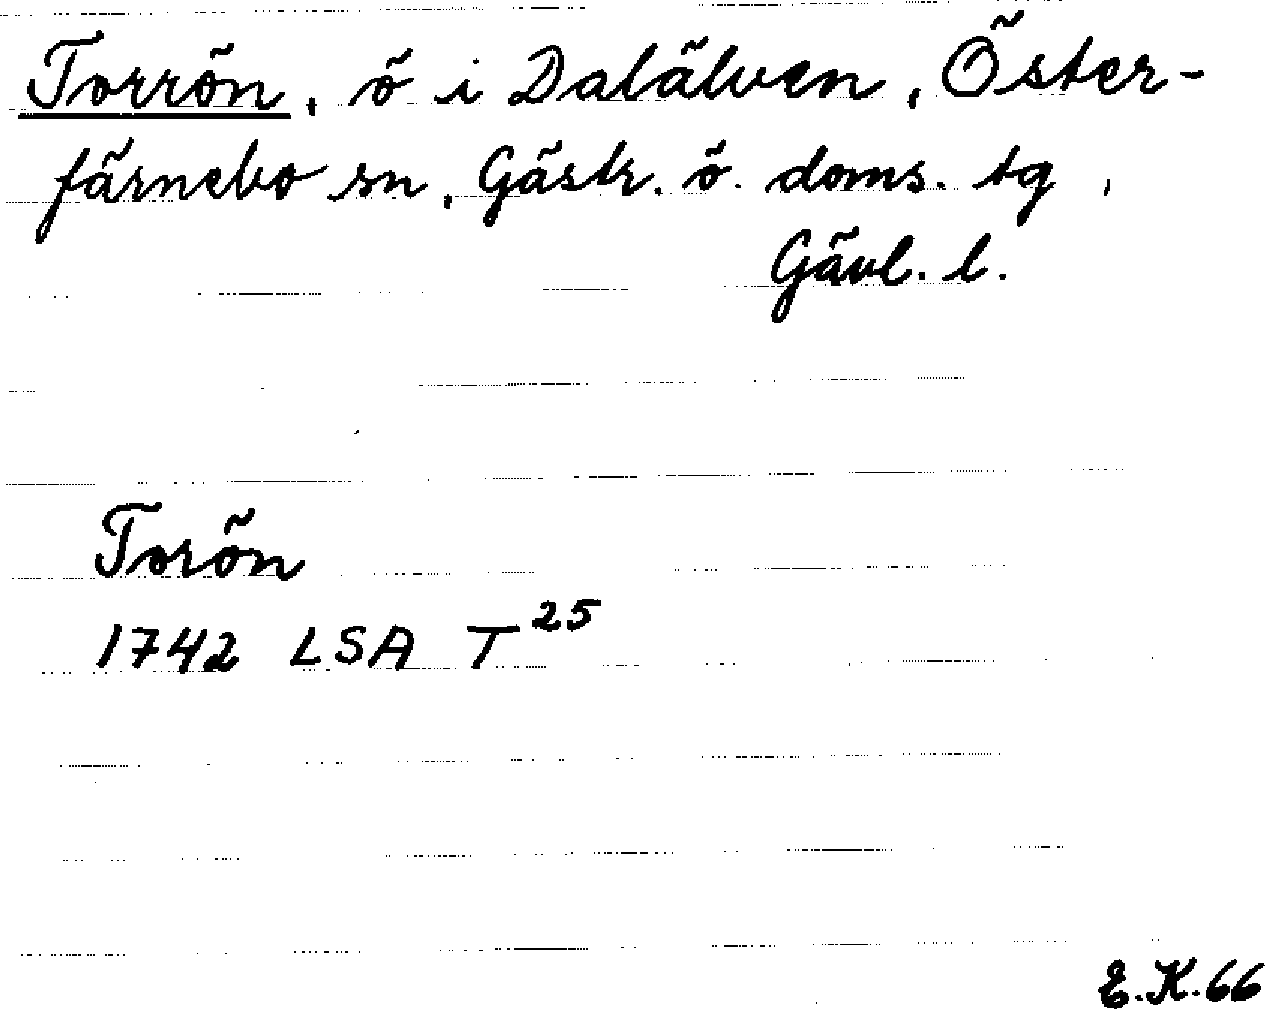 Torrön, ö i Dalälven, Öster-
färnebo sn, Gästr. ö. doms. tg,
Gävl. l.
Torön
1742 LSA T 25
E.K.66